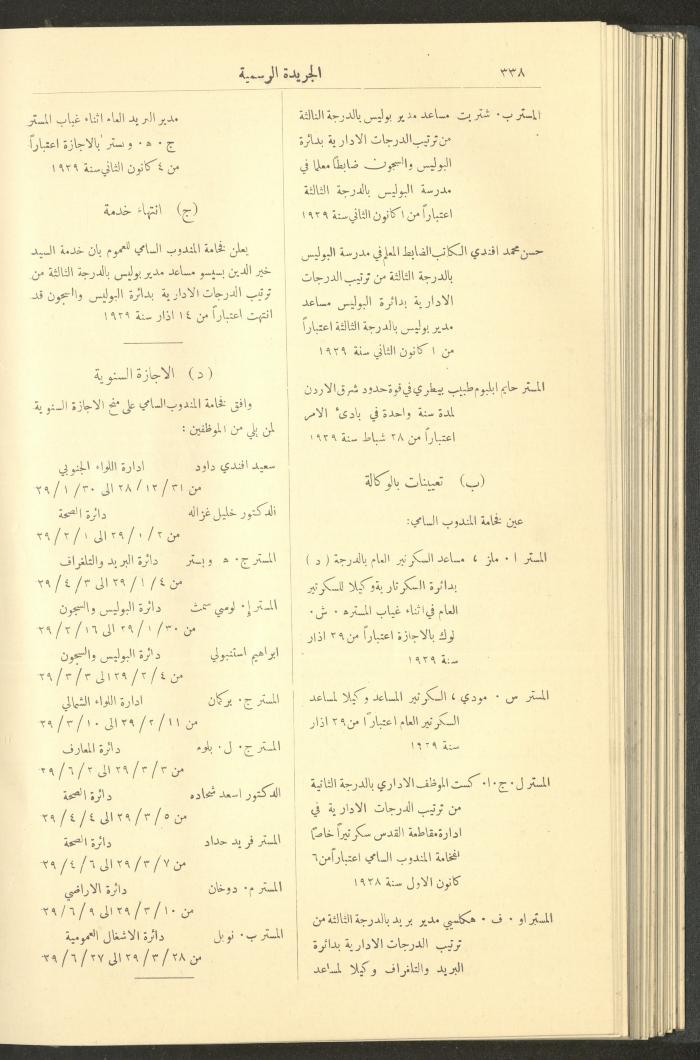 ٣٣٨
الجريدة الرسمية
المستر ب٠ شتريت مساعد مدير بوليس بالدرجة الثالثة
من ترتيب الدرجات الادارية بدائرة
البوليس والسجون ضابطًا معلما في
مدرسة البوليس بالدرجة الثالثة
اعتباراً من ١ كانون الثاني سنة ١٩٢٩
حسن محمد افندي الكاتب الضابط المعلم في مدرسة البوليس
بالدرجة الثالثة من ترتيب الدرجات
الادارية بدائرة البوليس مساعد
مدير بوليس بالدرجة الثالثة اعتباراً
من ١ كانون الثاني سنة ١٩٢٩
المستر حايم ابلبوم طبيب بيطري في قوة حدود شرق الاردن
لمدة سنة واحدة في بادئ الامر
اعتباراً من ٢٨ شباط سنة ١٩٢٩
(ب) تعيينات بالوكالة
عين فخامة المندوب السامي:
المستر ا٠ ملز ، مساعد السكرتير العام بالدرجة (د)
بدائرة السكرتارية وكيلا للسكرتير
العام في اثناء غياب المستر ه٠ ش٠
لوك بالاجازة اعتباراً من ٢٩ اذار
سنة ١٩٢٩
المستر س٠ مودي ، السكرتير المساعد وكيلا لمساعد
السكرتير العام اعتبارًا من ٢٩ اذار
سنة ١٩٢٩
المستر ل٠ ج٠ ا٠ كست الموظف الاداري بالدرجة الثانية
من ترتيب الدرجات الادارية في
ادارة مقاطعة القدس سكرتيراً خاصًا
لفخامة المندوب السامي اعتباراً من ٦
كانون الاول سنة ١٩٢٨
المستر او٠ ف٠ هكلسبي مدير بريد بالدرجة الثالثة من
ترتيب الدرجات الادارية بدائرة
البريد والتلغراف وكيلا لمساعد
مدير البريد العام اثناء غياب المستر
ج٠ ه٠ وبستر بالاجازة اعتباراً
من ٤ كانون الثاني سنة ١٩٢٩
(ج) انتهاء خدمة
يعلن فخامة المندوب السامي للعموم بان خدمة السيد
خير الدين بسيسو مساعد مدير بوليس بالدرجة الثالثة من
ترتيب الدرجات الادارية بدائرة البوليس والسجون قد
انتهت اعتباراً من ١٤ اذار سنة ١٩٢٩
(د) الاجازة السنوية
وافق فخامة المندوب السامي على منح الاجازة السنوية
لمن يلي من الموظفين :
سعيد افندي داود ادارة اللواء الجنوبي
من ٣١/١٢/٢٨ الى ٣٠/١/٢٩
الدكتور خليل غزاله دائرة الصحة
من ٢/١/٢٩ الى ١/٢/٢٩
المستر ج٠ ه وبستر دائرة البريد والتلغراف
من ٤/١/٢٩ الى ٣/٤/٢٩
المستر إ٠ لومي سمث دائرة البوليس والسجون
من ٣٠/١/٢٩ الى ١٦/٢/٢٩
ابراهيم استنبولي دائرة البوليس والسجون
من ٤/٢/٢٩ الى ٣/٣/٢٩
المستر ج٠ بركمان ادارة اللواء الشمالي
من ١١/٢/٢٩ الى ١٠/٣/٢٩
المستر ج٠ ل٠ بلوم دائرة المعارف
من ٣/٣/٢٩ الى ٢/٦/٢٩
الدكتور اسعد شحاده دائرة الصحة
من ٥/٣/٢٩ الى ٤/٤/٢٩
المستر فريد حداد دائرة الصحة
من ٧/٣/٢٩ الى ٦/٤/٢٩
المستر م٠ دوخان دائرة الاراضي
من ١٠/٣/٢٩ الى ٩/٦/٢٩
المستر ب٠ نوبل دائرة الاشغال العمومية
من ٢٨/٣/٢٩ الى ٢٧/٦/٢٩